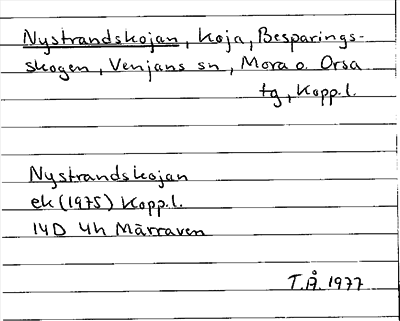 Nystrandskojan, koja, Besparings-
skogen, Venjans sn, Mora o. Orsa
tg, Kopp.l.
Nystrandskojan
ek (1975) Kopp.l.
14D 4h Märraven
T.Å. 1977